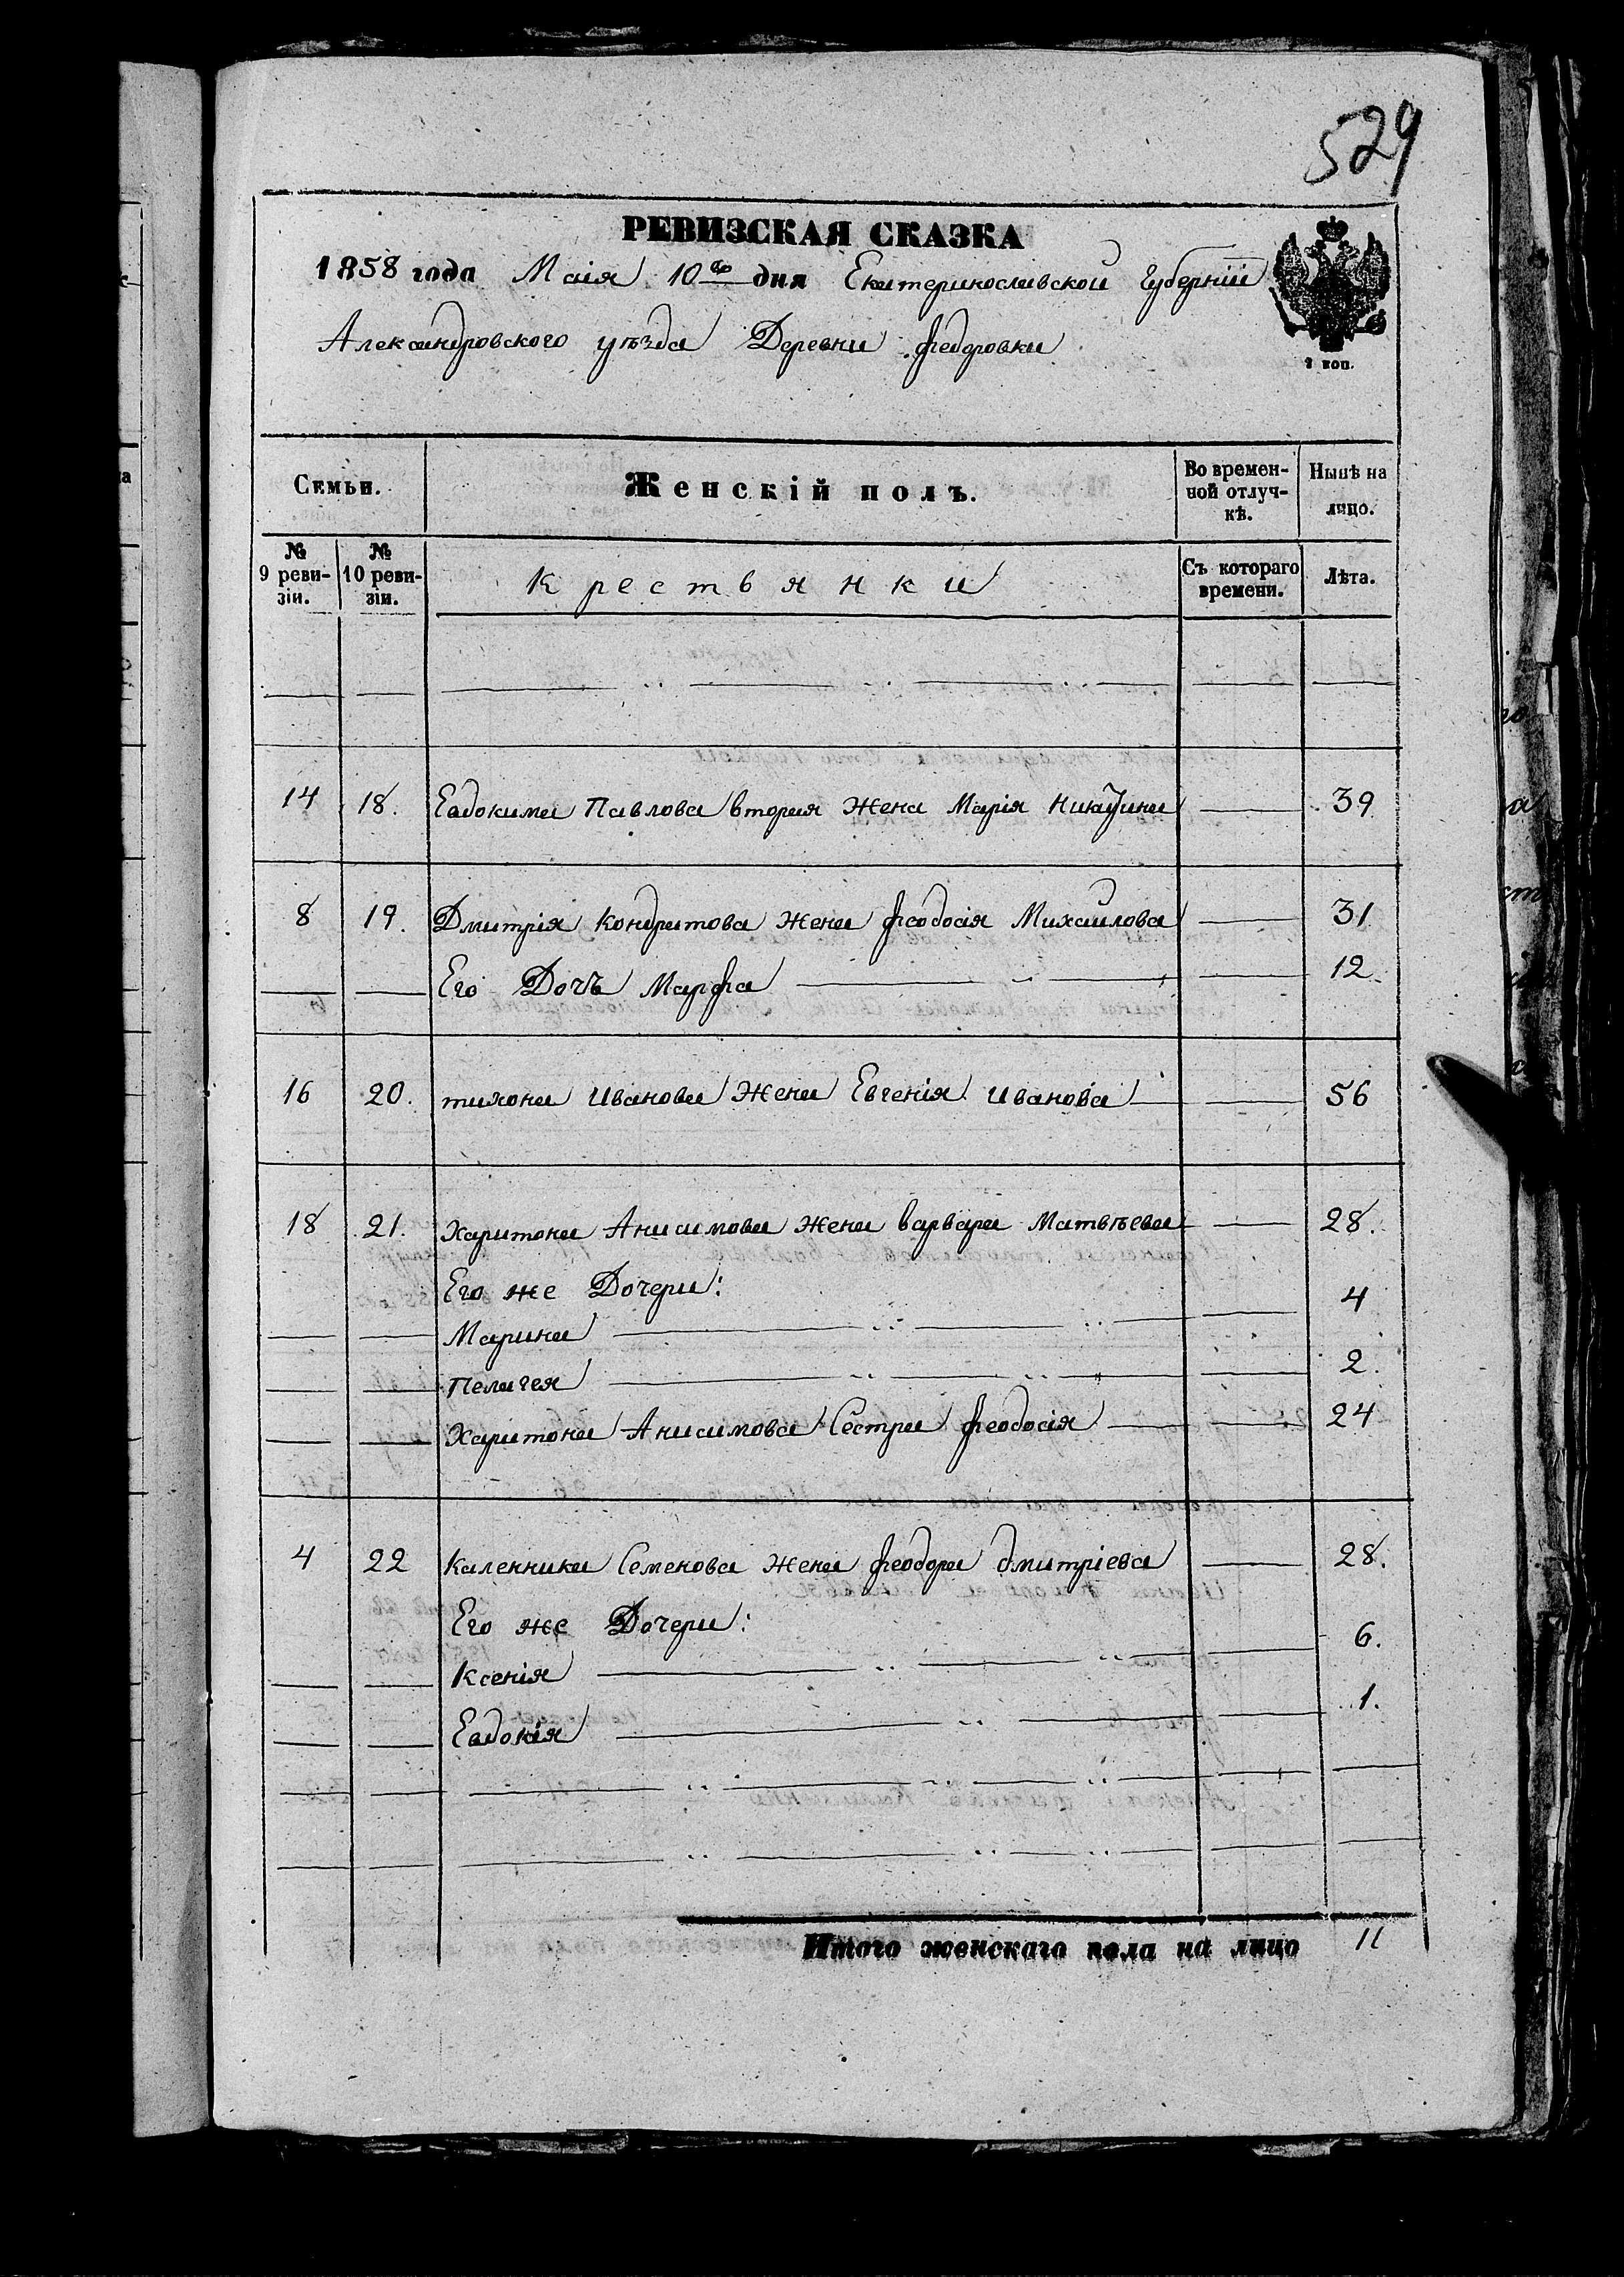 529
РЕВИЗСКАЯ СКАЗКА
1858 года Маія 10го дня Екатеринославской Губерніи
Александровского уѣзда Деревни Федоровки
2 коп.
Семьи. Женскій полъ. Во временной отлучкѣ. Нынѣ на лицо.
№ 9 ревизіи. № 10 ревизіи. Крестьянки Съ котораго времени. Лѣта.
14 18. Евдокима Павлова вторая жена Марія 39
8 19. Дмитрія Кондратова жена Феодосія Михайлова 31
Его Дочь Марфа 12
16 20. тихона Иванова жена Евгенія Иванова 56
18 21. Харитона Анисимова жена Варвара Матвѣева 28.
Его же Дочери:
Марина 4
Пелагея 2.
Харитона Анисимова Сестра Феодосія 24
4 22 Каленника Семенова жена Феодора дмитріева 28.
Его же Дочери:
Ксенія 6.
Евдокія 1.
Итого женскаго пола на лицо 11